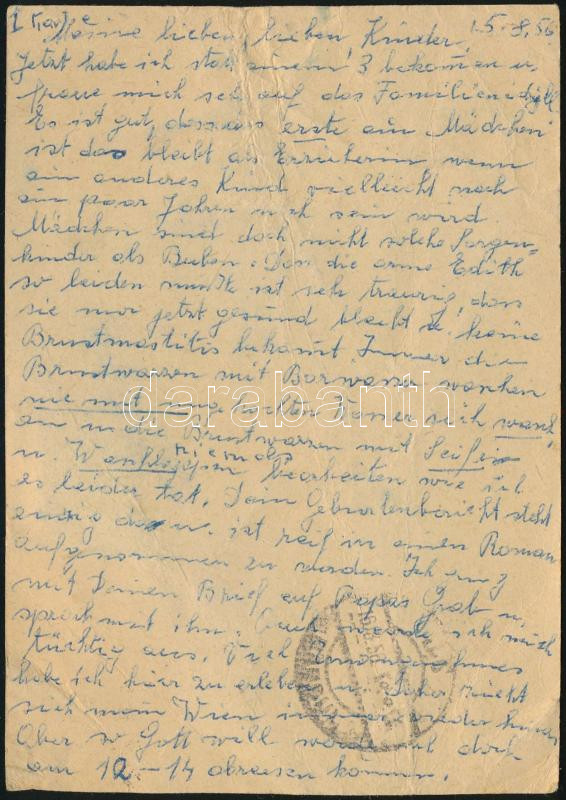 1 Karte
1.5.8.56
Meine lieben, lieben Kinder,
Jetzt habe ich statt einem 3 bekommen u.
freue mich sehr auf das Familienidyll
Es ist gut, dass das erste ein Mädchen
ist das bleibt als Erzieherin wenn
ein anderes Kind vielleicht nach
ein paar Jahren noch sein wird.
Mädchen sind doch nicht solche Sorgen-
kinder als Buben. Das die arme Edith
so leiden musste ist sehr traurig, das
sie nur jetzt gesund bleibt u. keine
Brustmastitis bekomt Immer die
Brustwarzen mit Borwasser waschen
nie mit
an die Brustwarzen mit Seife
u. niemals bearbeiten wie ich
es leider tat. Dein Geburtenbericht steht
einzig da u. ist reif in einen Roman
aufgenommen zu werden. Ich ging
mit Deinen Brief auf Papas Grab u.
sprach mit ihm. Auch weinte ich mich
tüchtig aus. Viel Unangenehmes
habe ich hier zu erleben u. daher rückt
sich mein Wien immer wieder hinaus
Aber so Gott will werde ich doch
am 12-14 abreisen können.
darabanth.com